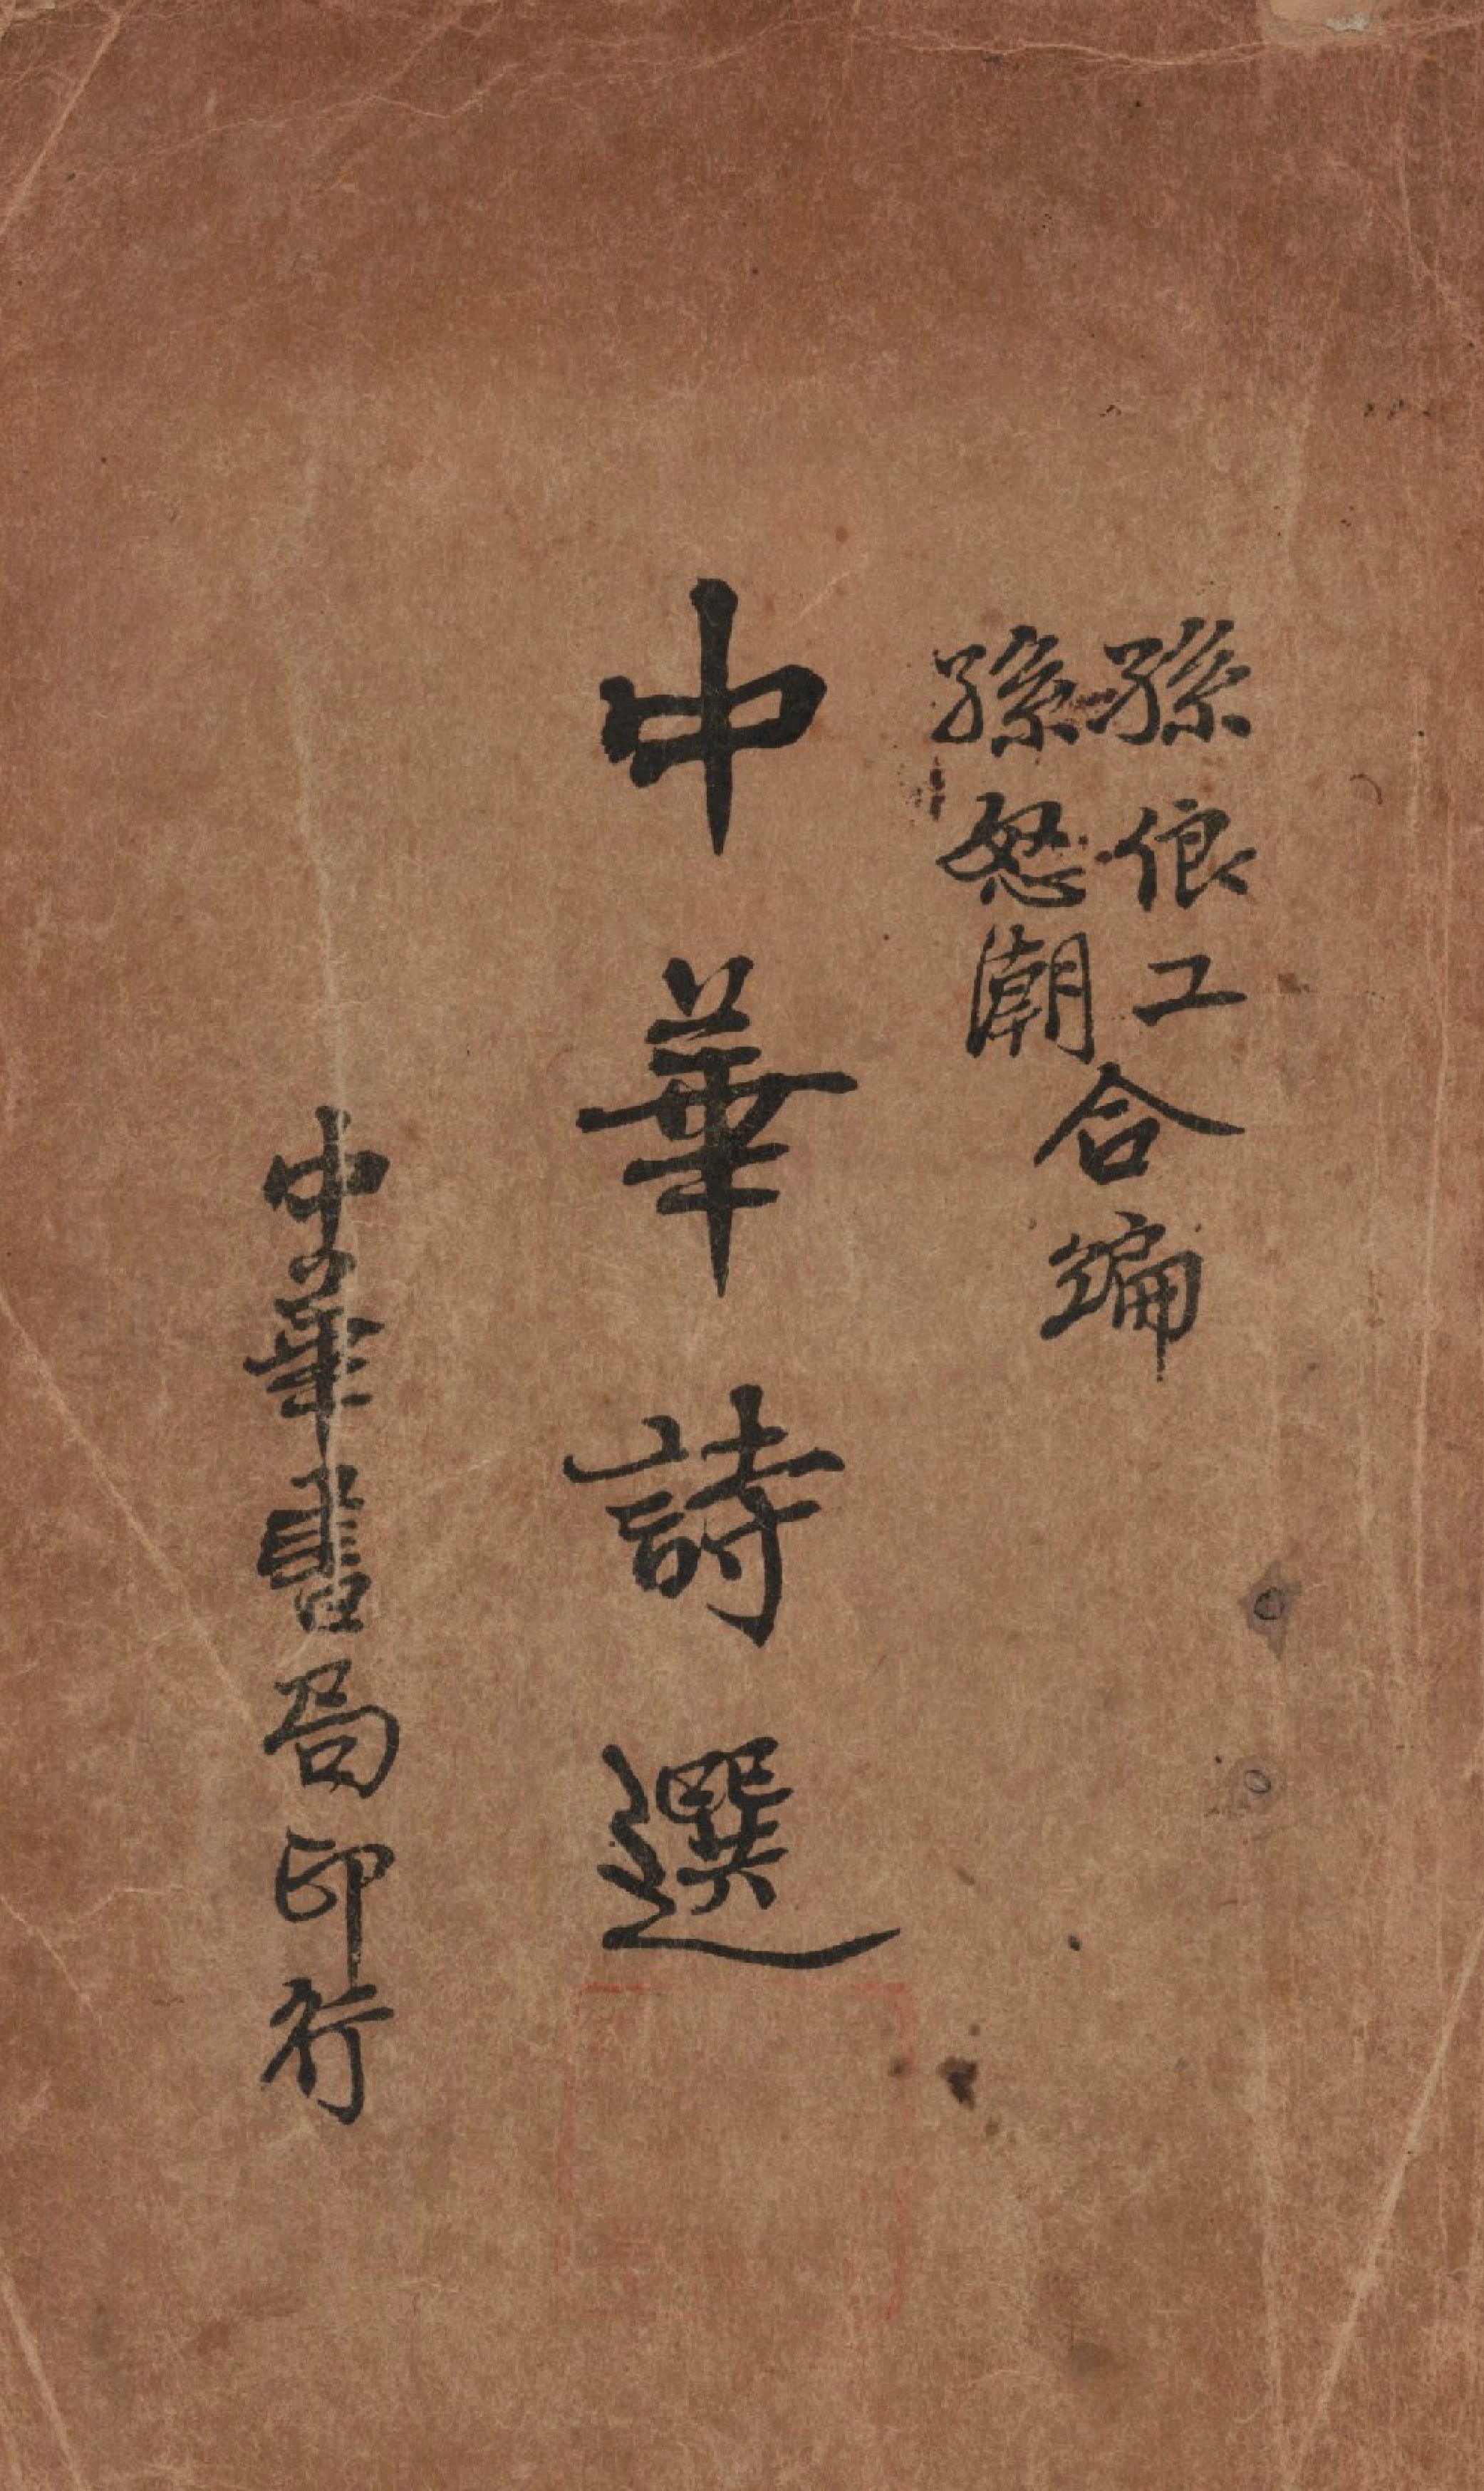 孫俍工
孫怒潮
合編
中華詩選
中華書局印行